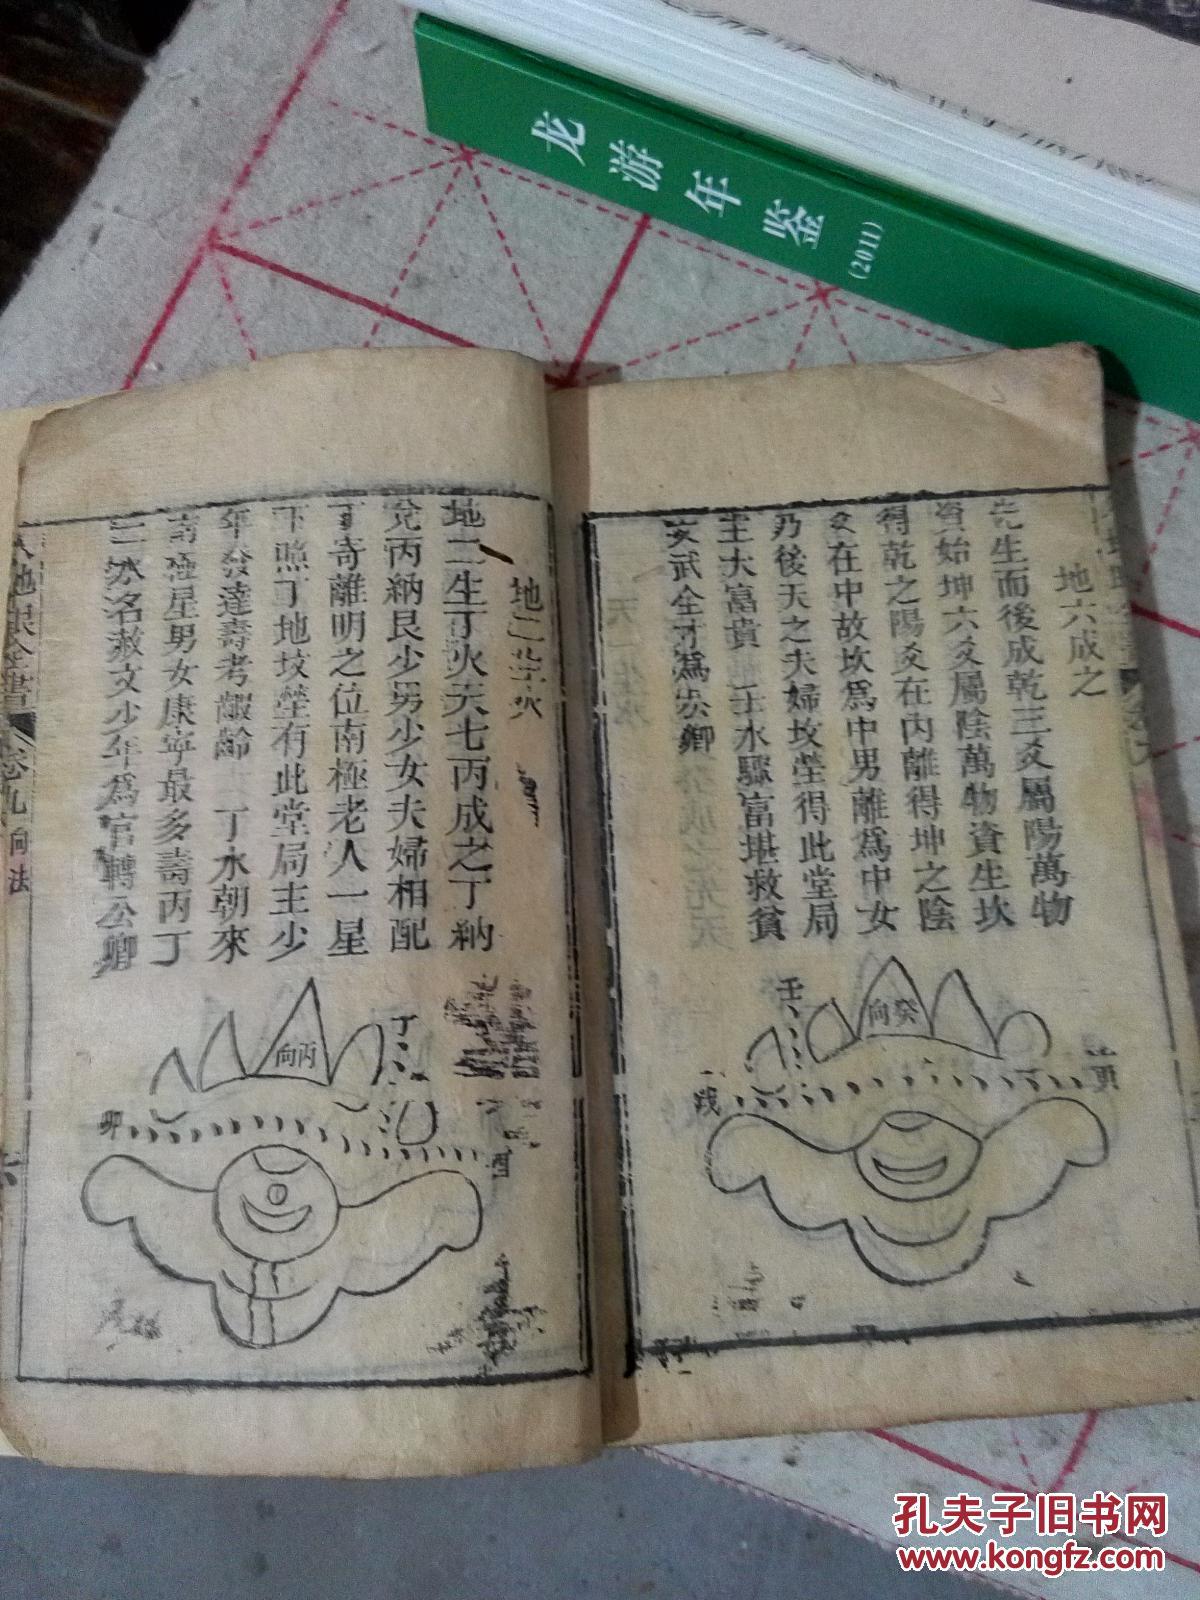 龙游年鉴(2011)
地六成之
先生而後成乾三爻屬陽萬物
資始坤六爻屬陰萬物資生坎
得乾之陽爻在内離得坤之陰
爻在中故坎爲中男離爲中女
乃後天之夫婦坟塋得此堂局
主大富貴 壬水驟富堪救貧
亥武全才爲公卿
壬
癸向
地二生火
地二生丁火天七丙成之丁納
兌丙納艮少男少女夫婦相配
丁寄離明之位南極老人一星
下照丁地坟塋有此堂局主少
年發達壽考齠齡 丁水朝來
南極星男女康寧最多壽丙丁
二水名赦文少年爲官轉公卿
丁
丙向
卯
酉
地眼全書
卷九向法
孔夫子旧书网
www.kongfz.com